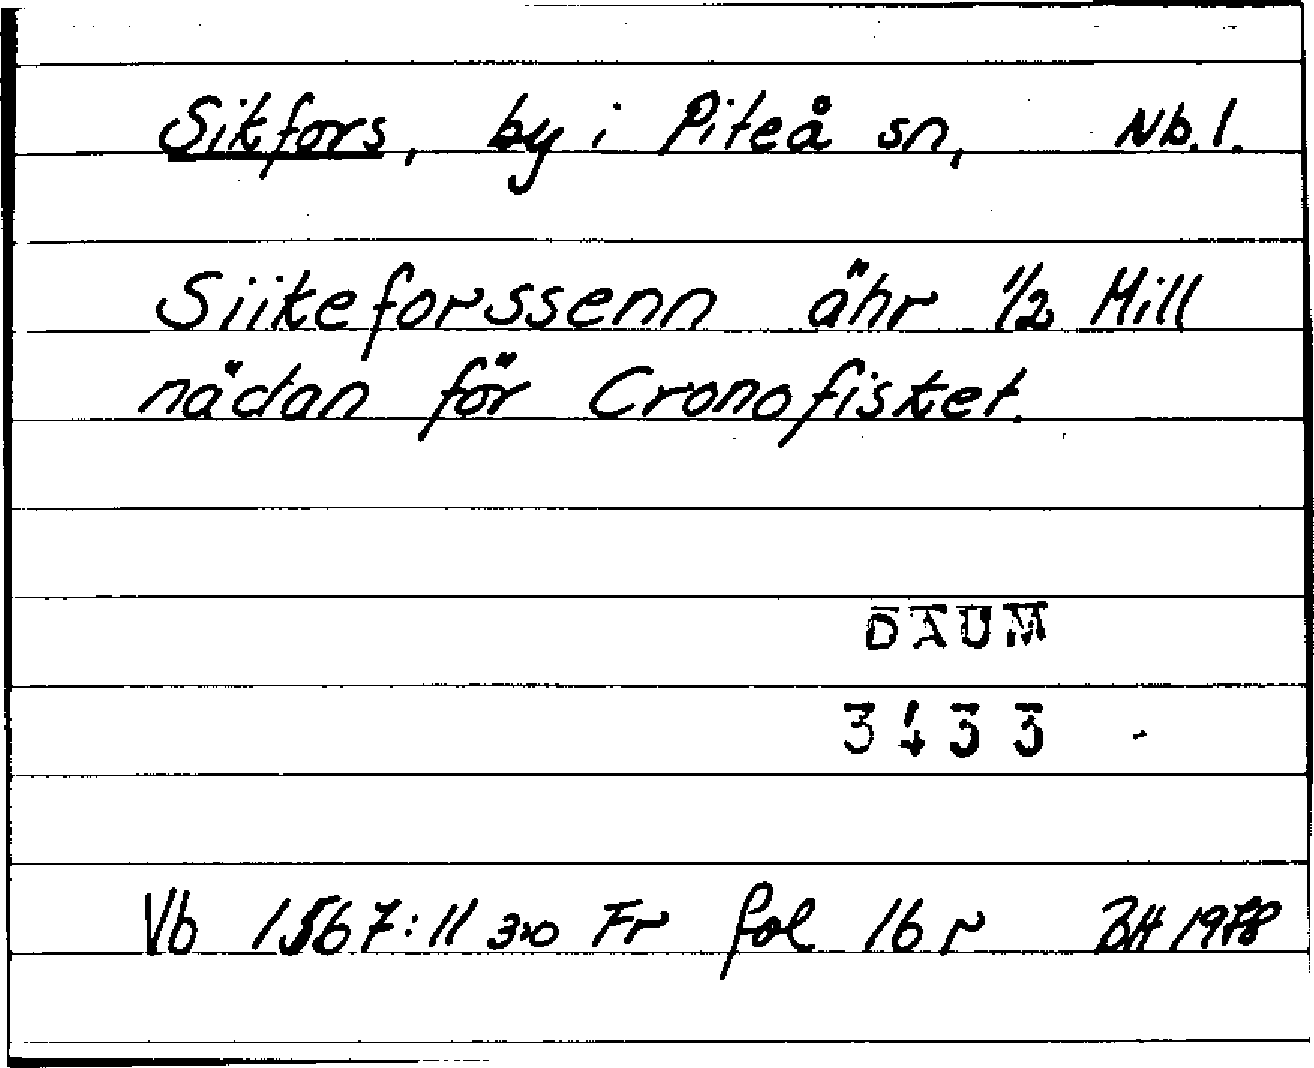 Sikfors, by i Piteå sn, Nb. l.
Siikeforssenn ähr 1/2 Mill
nädan för Cronofisket.
DAUM
3433
Vb 1567:11 3:o Fr fol 16 r BH 1978